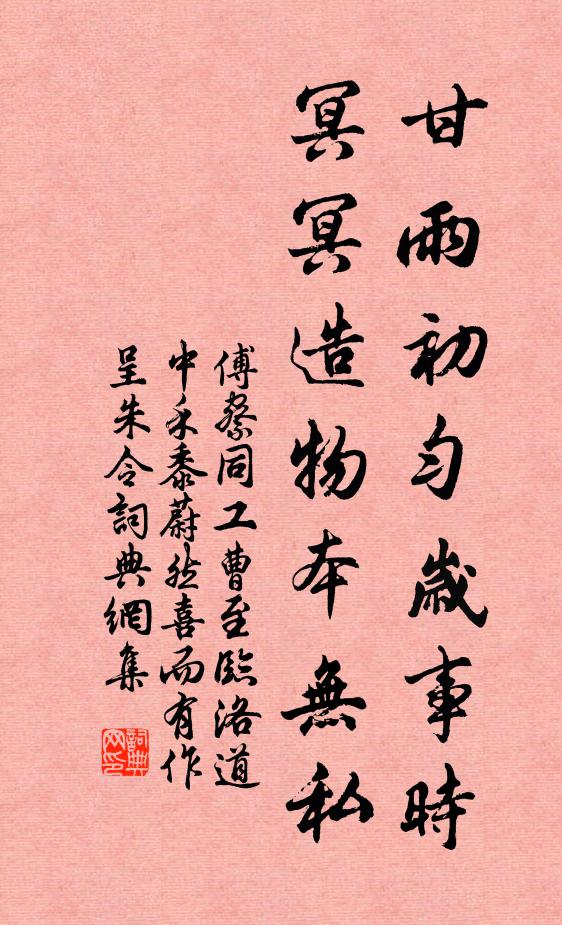 甘雨初勻歲事時
冥冥造物本無私
傅察同工曹至臨洛道
中禾黍蔚然喜而有作
呈朱令詞典網集
詞典
网印